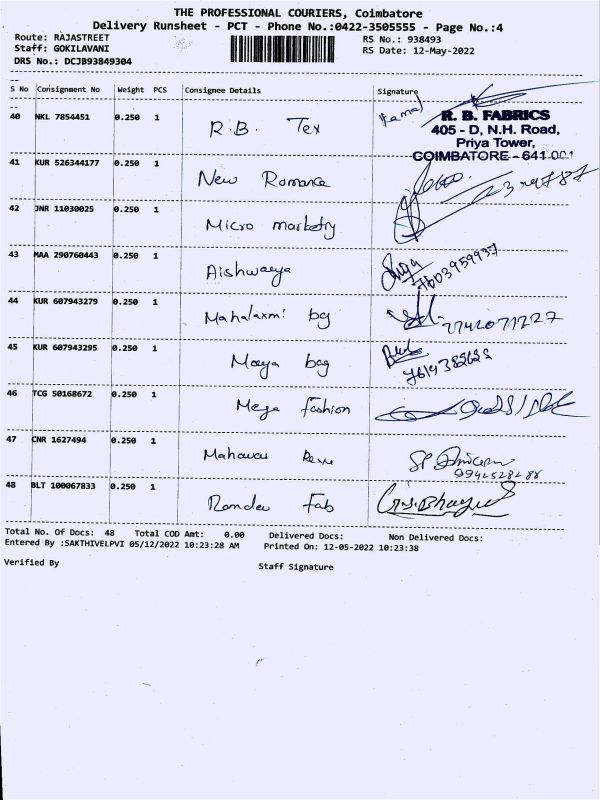 THE PROFESSIONAL COURIERS, Coimbatore
Delivery Runsheet - PCT - Phone No.:0422-3505555 - Page No.:4
Route: RAJASTREET RS No.: 938493
Staff: GOKILAVANI RS Date: 12-May-2022
DRS No.: DCJB93849304
S No Consignment No Weight PCS Consignee Details Signature
40 NKL 7854451 0.250 1 R.B. Tex Kamal
R. B. FABRICS
405 - D, N.H. Road,
Priya Tower,
COIMBATORE - 641 001
41 KUR 526344177 0.250 1 New Romance
42 JNR 11030025 0.250 1 Micro
43 MAA 290760443 0.250 1 Aishwarya 7603959937
44 KUR 607943279 0.250 1 Mahalaxmi bg
45 KUR 607943295 0.250 1 Maya bag
46 TCG 50168672 0.250 1 Mega Fashion
47 CNR 1627494 0.250 1
48 BLT 100067833 0.250 1 Ramdev Fab
Total No. Of Docs: 48 Total COD Amt: 0.00 Delivered Docs: Non Delivered Docs:
Entered By :SAKTHIVELPVI 05/12/2022 10:23:28 AM Printed On: 12-05-2022 10:23:38
Verified By Staff Signature